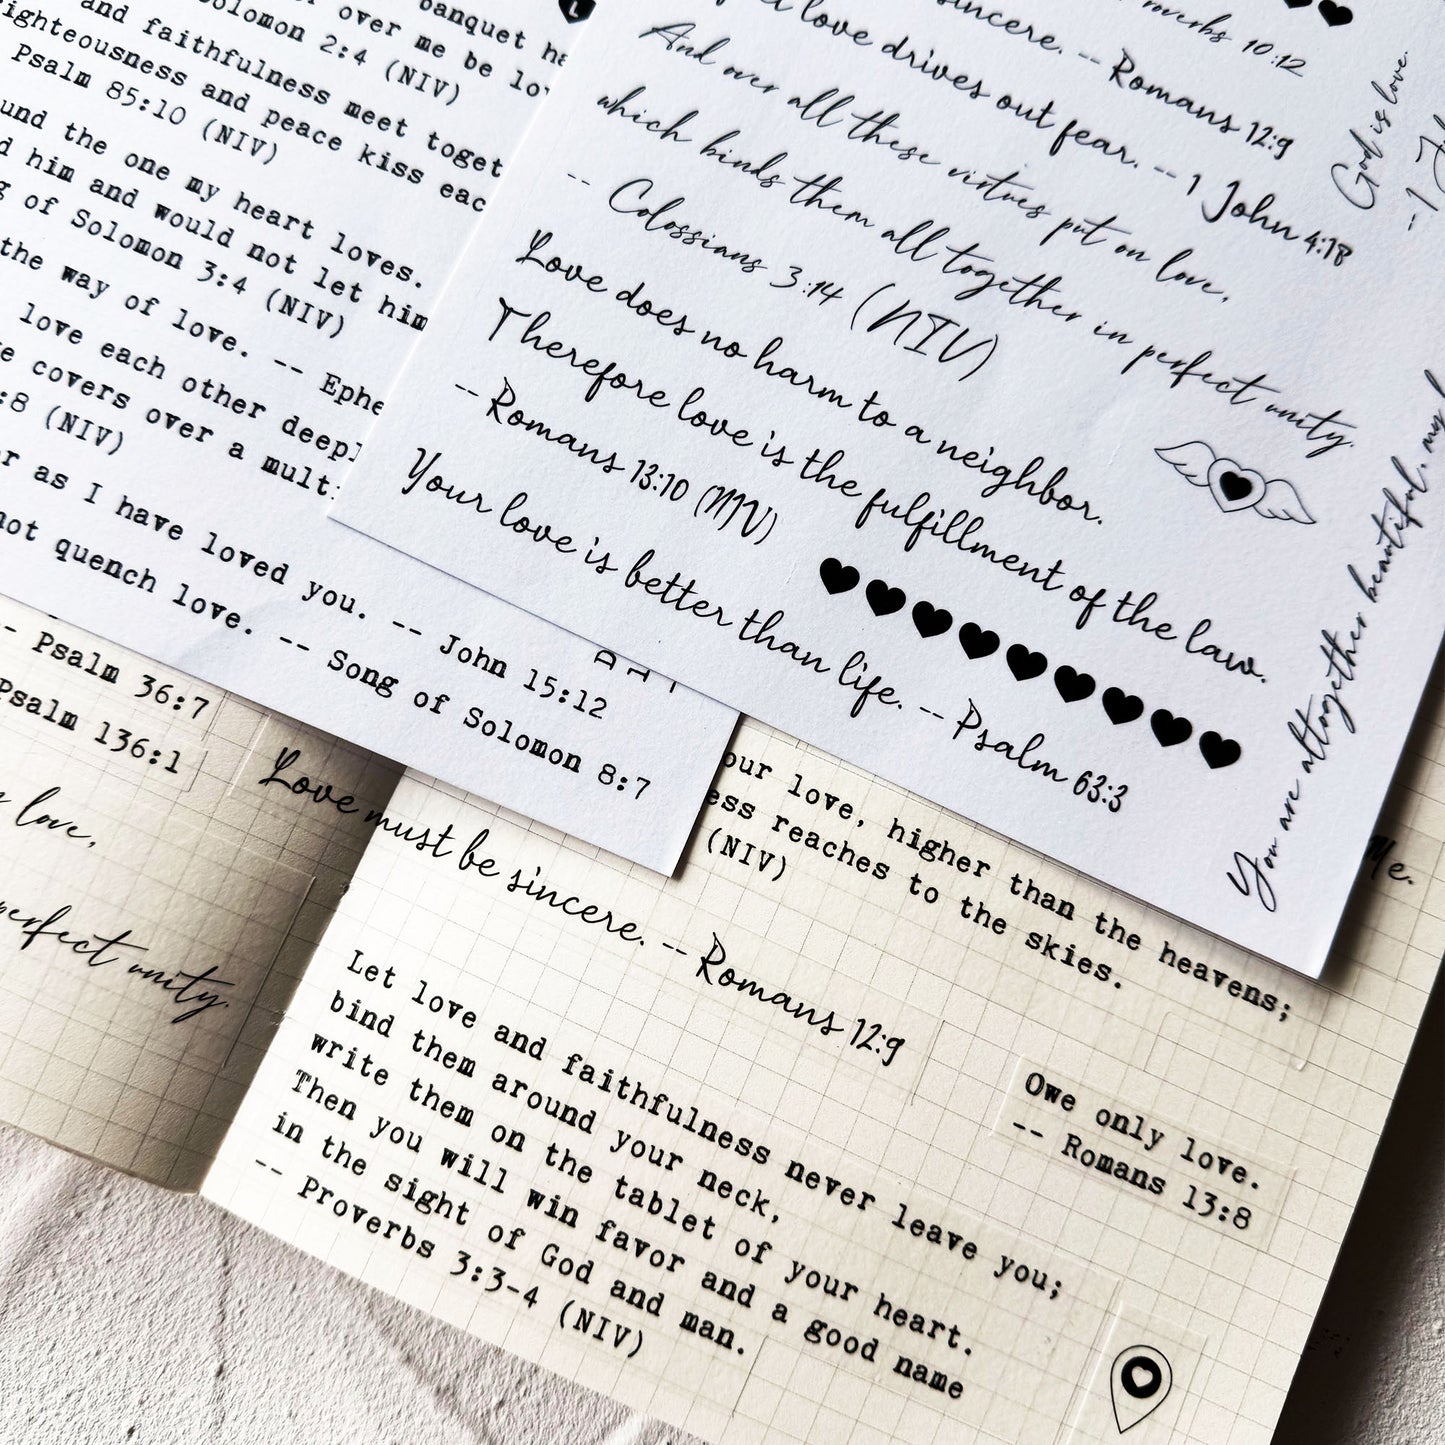 banquet
over me be
Solomon 2:4 (NIV)
and faithfulness meet
righteousness and peace kiss
Psalm 85:10 (NIV)
the one my heart loves.
him and would not let him
of Solomon 3:4 (NIV)
the way of love. --
love each other
covers over a
:8 (NIV)
as I have loved you. -- John 15:12
not quench love. -- Song of Solomon 8:7
10:12
sincere. -- Romans 12:9
love drives out fear. -- 1 John 4:18
And over all these virtues put on love,
which binds them all together in perfect unity.
-- Colossians 3:14 (NIV)
Love does no harm to a neighbor.
Therefore love is the fulfillment of the law.
-- Romans 13:10 (NIV)
Your love is better than life. -- Psalm 63:3
God is love.
You are altogether beautiful, my
-- Psalm 36:7
Psalm 136:1
love,
perfect unity.
Love must be sincere. -- Romans 12:9
our love, higher than the heavens;
reaches to the skies.
(NIV)
Me.
Let love and faithfulness never leave you;
bind them around your neck,
write them on the tablet of your heart.
Then you will win favor and a good name
in the sight of God and man.
-- Proverbs 3:3-4 (NIV)
Owe only love.
-- Romans 13:8